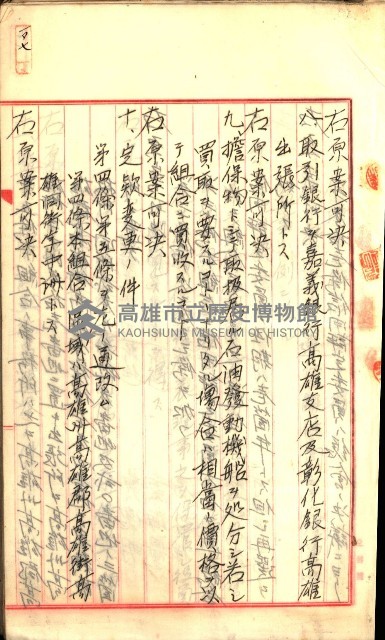 右原案可決
八、取引銀行ヲ嘉義銀行高雄支店及彰化銀行高雄
出張所トス
右原案可決
九、擔保物トシテ取扱タル石油發動機船ヲ処分シ若シ
買取ヲ要スルコトトナリタル場合ハ相當ノ價格ヲ以
テ組合ニ買收スルコト
右原案可決
十、定款変更ノ件
第四條第五條ヲ左ノ通改ム
第四條本組合ノ區域ハ高雄州高雄郡高雄街高
雄同街
右原案可決
高雄市立歷史博物館
KAOHSIUNG MUSEUM OF HISTORY